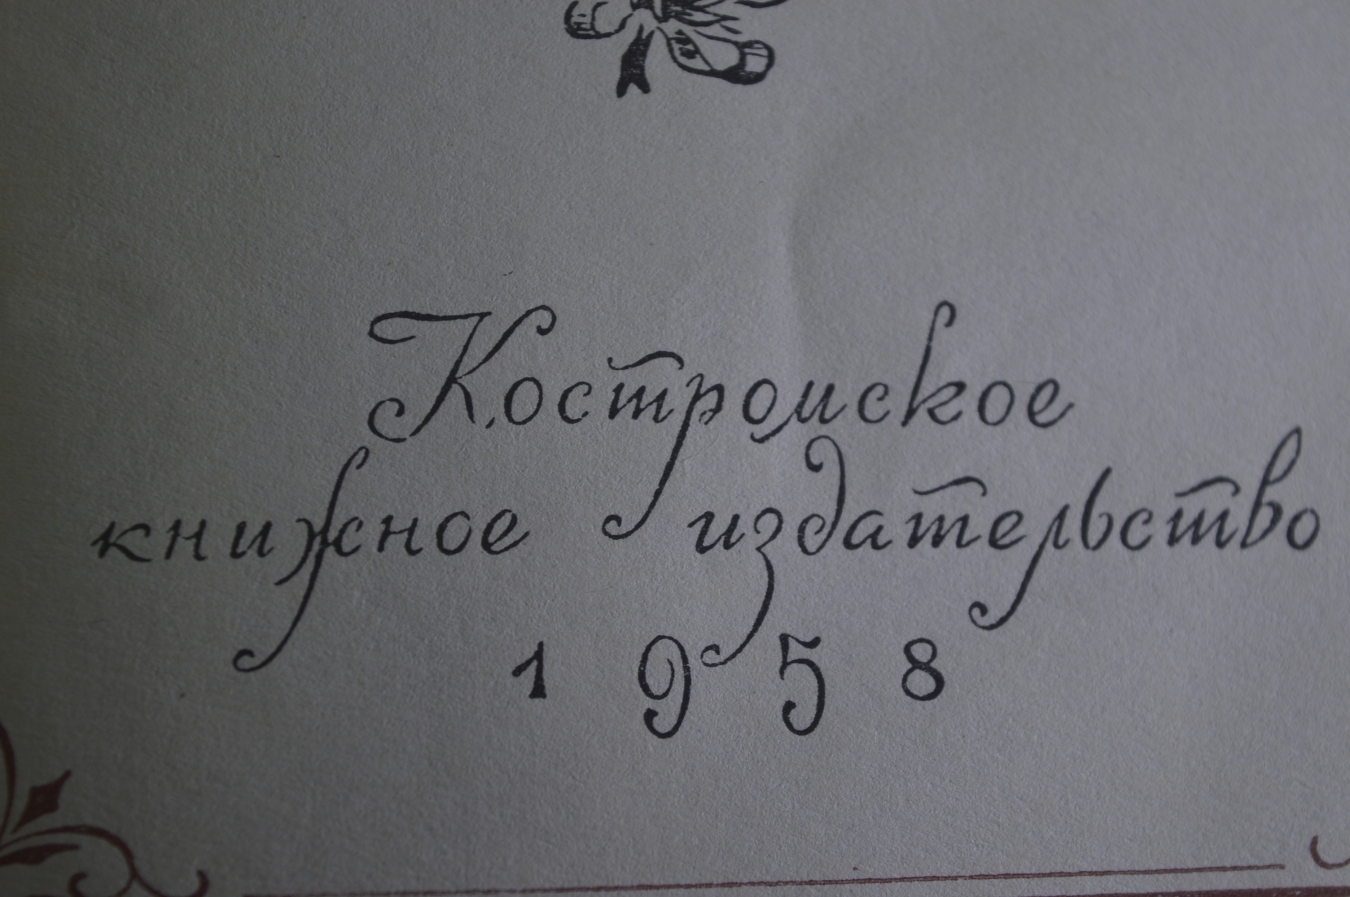 Костромское
книжное издательство
1958